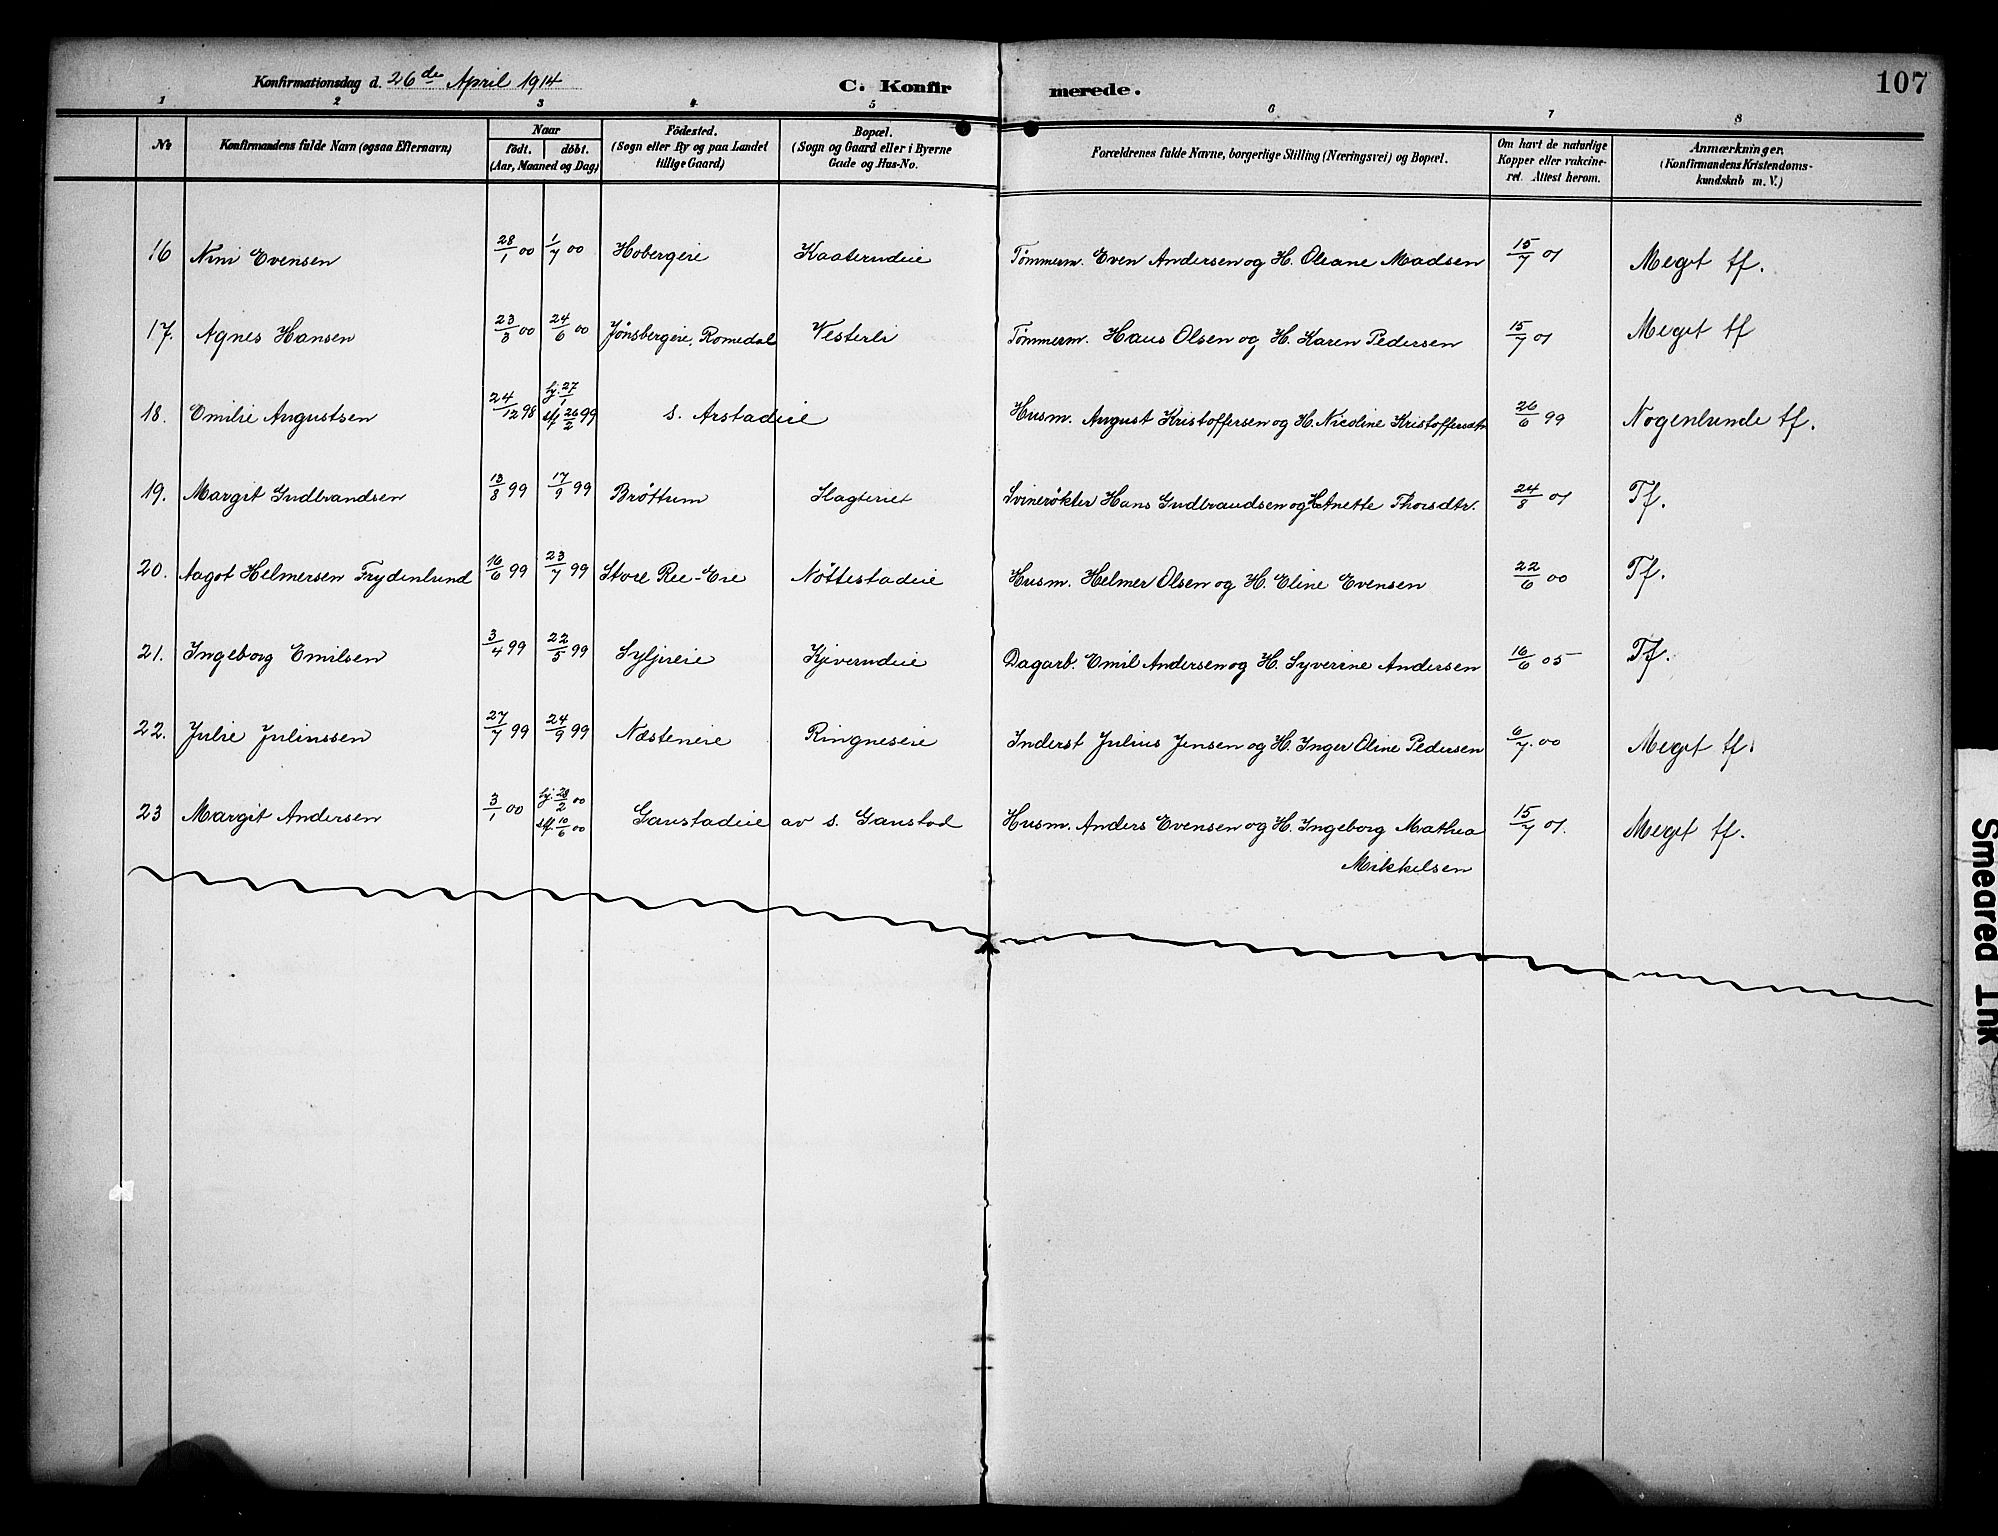 Konfirmationsdag d. 26de April 1914 C. Konfir merede. 107
1 2 3 4 5 6 7 8
No Konfirmandens fulde Navn (ogsaa Efternavn) Naar födt. döbt. (Aar, Maaned og Dag) Födested. (Sogn eller By og paa Landet tillige Gaard) Bopæl. (Sogn og Gaard eller i Byerne Gade og Hus-No. Forældrenes fulde Navne, borgerlige Stilling (Næringsvei) og Bopæl. Om havt de naturlige Kopper eller vakcineret. Attest herom. Anmærkninger. (Konfirmandens Kristendomskundskab m. V.)
16 Nini Evensen 28/1 00 1/7 00 Hobergeie Kaaterudeie Tømmerm. Even Andersen og H. Oleane Madsen 15/7 01 Meget tf.
17. Agnes Hansen 23/3 00 24/6 00 Jønsbergeie, Romedal Vesterli Tømmerm. Hans Olsen og H. Karen Pedersen 15/7 01 Meget tf
18. Emilie Augustsen 24/12 98 hj. 27/1 stf 26/2 99 s. Arstadeie Husm. August Kristoffersen og H. Nicoline Kristoffersdtr 26/6 99 Nogenlunde tf.
19. Margit Gudbrandsen 13/8 99 17/9 99 Brøttum Slagteriet Svinerøkter Hans Gudbrandsen og H. Anette Thorsdtr. 24/8 01 Tf.
20. Aagot Helmersen Frydenlund 16/6 99 23/7 99 Store Ree-Eie Nøttestadeie Husm. Helmer Olsen og H. Eline Evensen 22/6 00 Tf.
21. Ingeborg Emilsen 3/4 99 22/5 99 Syljueie Kjverudeie Dagarb. Emil Andersen og H. Syverine Andersen 16/6 05 Tf.
22. Julie Juliussen 27/7 99 24/9 99 Næsteneie Ringneseie Inderst Julius Jensen og H. Inger Oline Pedersen 6/7 00 Meget tf.
23 Margit Andersen 3/1 00 hj. 28/2 00 stf. 10/6 00 Gaustadeie av s. Gaustad Husm. Anders Evensen og H. Ingeborg Mathea 15/7 01. Meget tf.
Mikkelsen
Smeared Ink